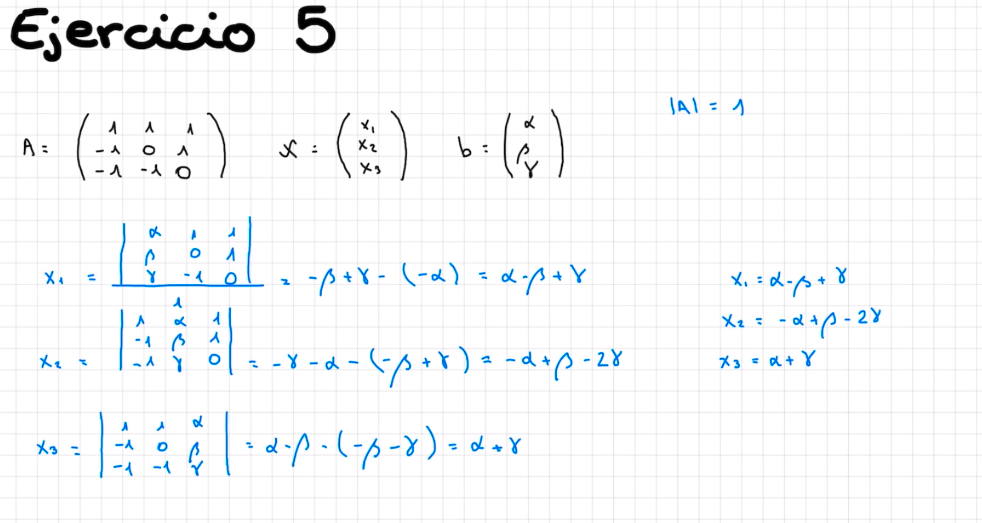 Ejercicio 5
|A| = 1
A = ( 1 1 1 ; -1 0 1 ; -1 -1 0 ) x = ( x₁ ; x₂ ; x₃ ) b = ( α ; β ; γ )
x₁ = | α 1 1 ; β 0 1 ; γ -1 0 | / 1 = -β + γ - (-α) = α - β + γ
x₂ = | 1 α 1 ; -1 β 1 ; -1 γ 0 | = -γ - α - (-β + γ) = -α + β - 2γ
x₃ = | 1 1 α ; -1 0 β ; -1 -1 γ | = α - β - (-β - γ) = α + γ
x₁ = α - β + γ
x₂ = -α + β - 2γ
x₃ = α + γ